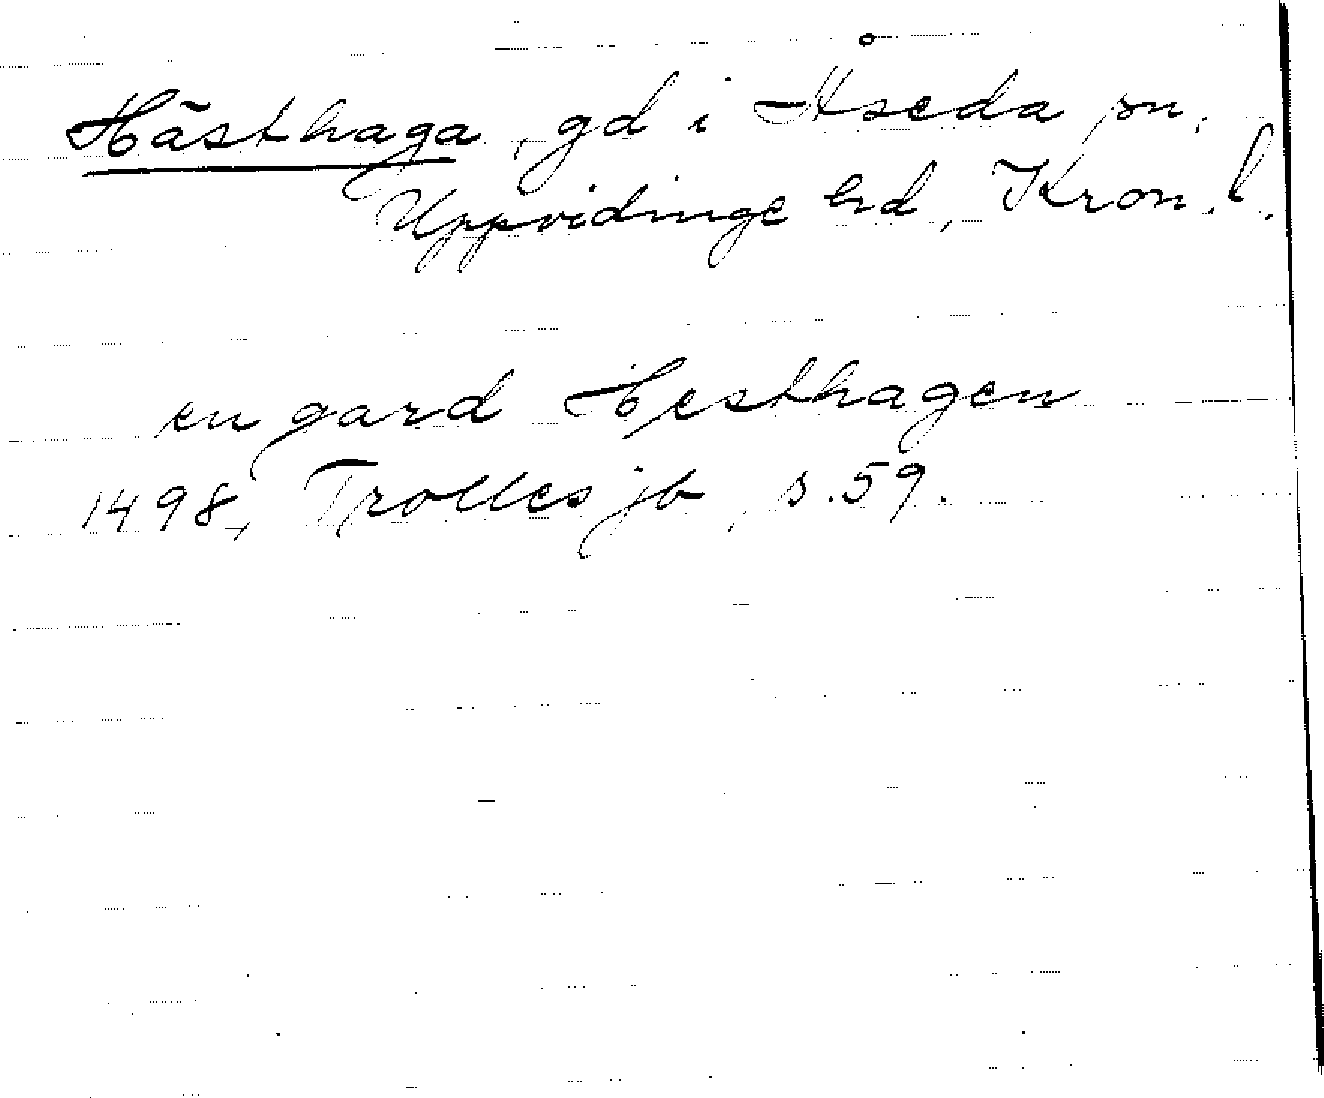 Hästhaga, gd i Åseda sn,
Uppvidinge hd, Kron. l.
en gard Hesthagen
1498, Trolles jb, s. 59.